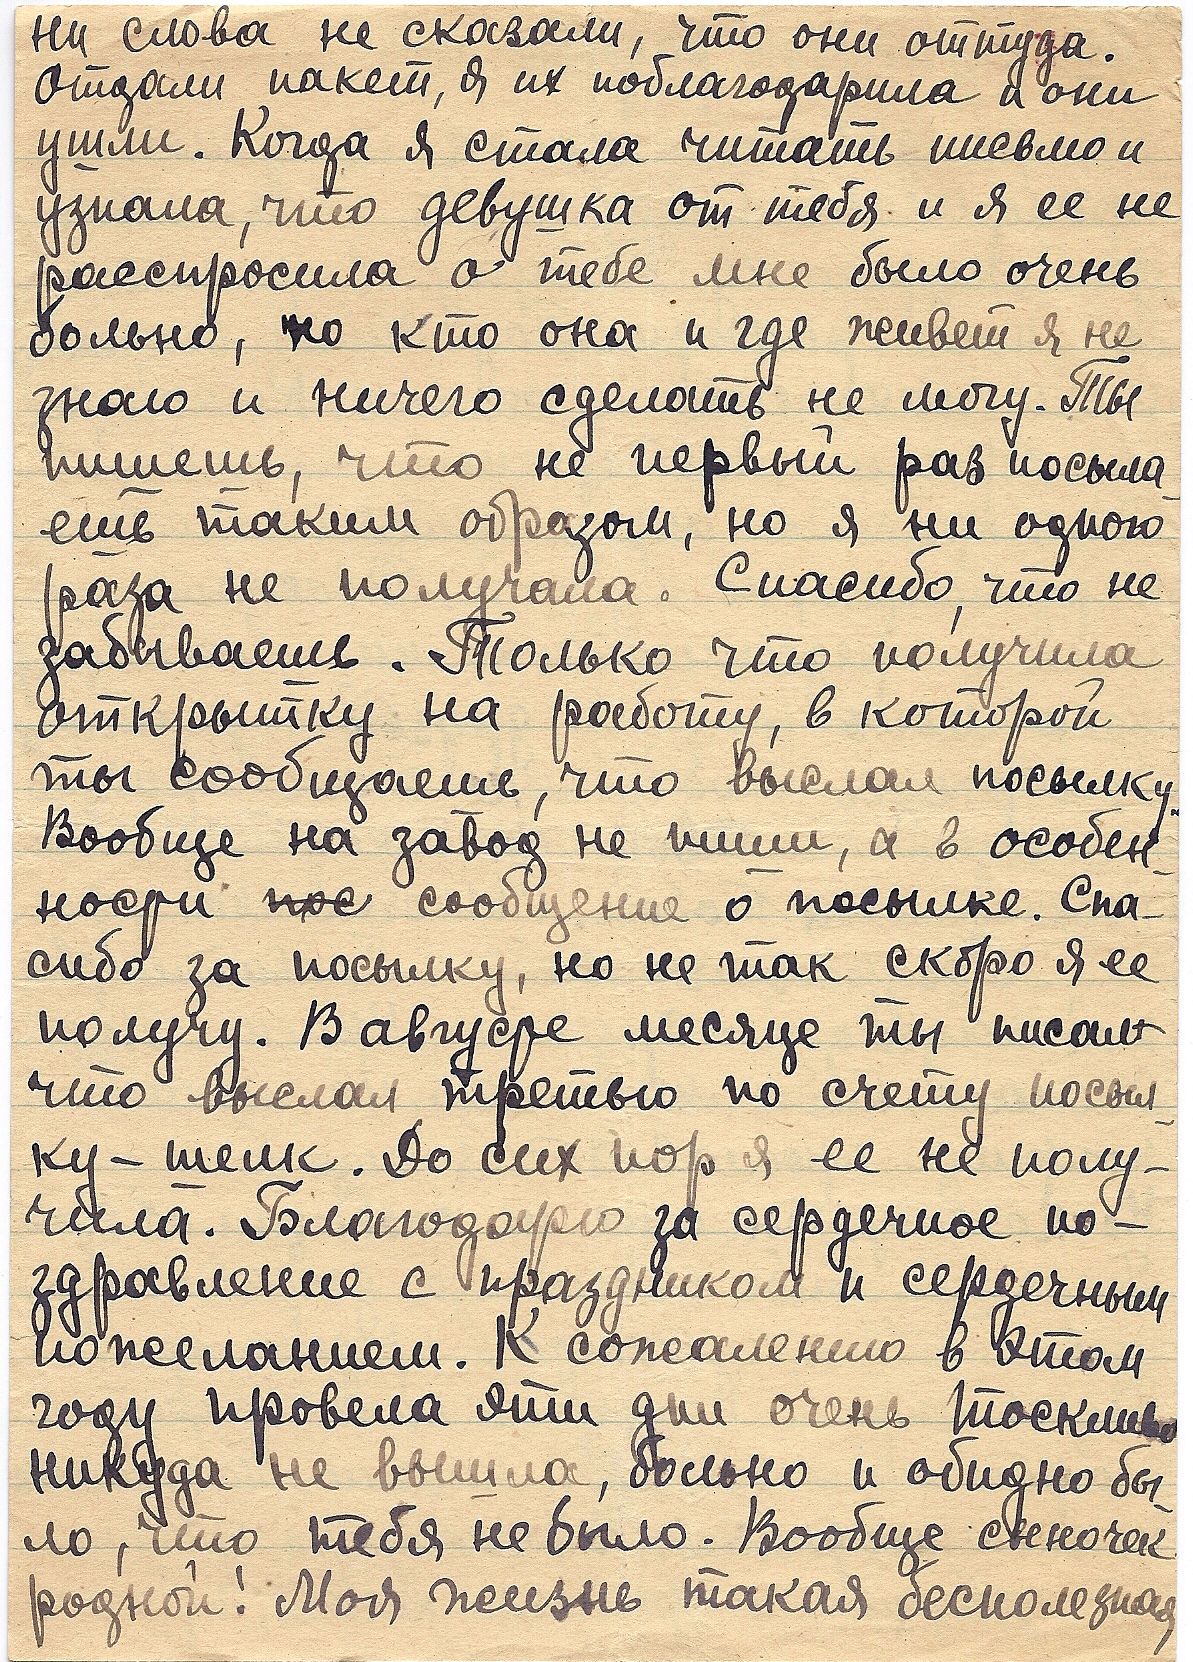 ни слова не сказали, что они оттуда.
Отдали пакет, я их поблагодарила и они
ушли. Когда я стала читать письмо и
узнала, что девушка от тебя и я ее не
расспросила о тебе мне было очень
больно, но кто она и где живет я не
знаю и ничего сделать не могу. Ты
пишешь, что не первый раз посыла-
ешь таким образом, но я ни одного
раза не получала. Спасибо, что не
забываешь. Только что получила
открытку на работу, в которой
ты сообщаешь, что выслал посылку.
Вообще на завод не пиши, а в особен-
ности пос сообщение о посылке. Спа-
сибо за посылку, но не так скоро я ее
получу. В августе месяце ты писал
что выслал третью по счету посыл-
ку – шелк. До сих пор я ее не полу-
чила. Благодарю за сердечное по-
здравление с праздником и сердечным
пожеланием. К сожалению в этом
году провела эти дни очень тоскливо
никуда не вышла, больно и обидно бы-
ло, что тебя не было. Вообще сыночек
родной! Моя жизнь такая бесполезная